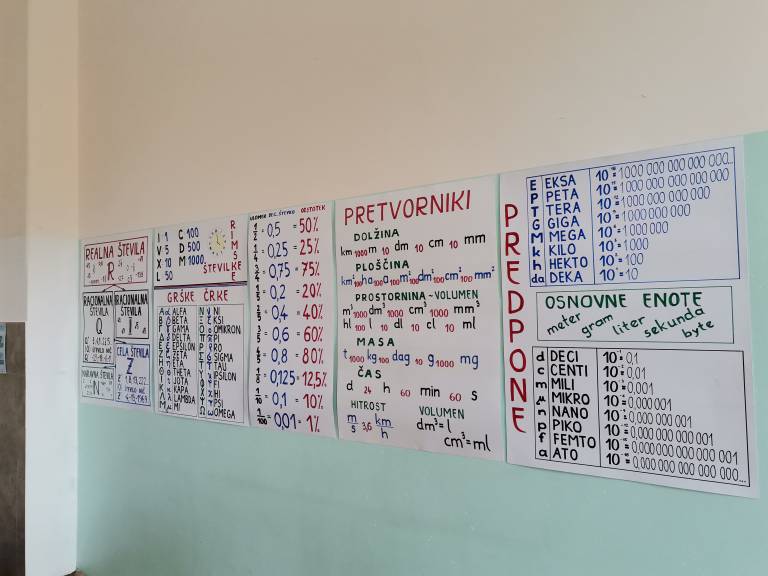 REALNA ŠTEVILA
R
RACIONALNA
ŠTEVILA
Q
IRACIONALNA
ŠTEVILA
I
CELA ŠTEVILA
Z
NARAVNA ŠTEVILA
N
I 1 C 100
V 5 D 500
X 10 M 1000
L 50
RIMSKE
ŠTEVILKE
GRŠKE ČRKE
ALFA
BETA
GAMA
DELTA
EPSILON
ZETA
ETA
THETA
JOTA
KAPA
LAMBDA
MI
NI
KSI
OMIKRON
PI
RO
SIGMA
TAU
IPSILON
FI
HI
PSI
OMEGA
ULOMEK DEC. ŠTEVILO ODSTOTEK
1/2 = 0,5 = 50%
1/4 = 0,25 = 25%
3/4 = 0,75 = 75%
1/5 = 0,2 = 20%
2/5 = 0,4 = 40%
3/5 = 0,6 = 60%
4/5 = 0,8 = 80%
1/8 = 0,125 = 12,5%
1/10 = 0,1 = 10%
1/100 = 0,01 = 1%
PRETVORNIKI
DOLŽINA
km 1000 m 10 dm 10 cm 10 mm
PLOŠČINA
km² 100 ha 100 a 100 m² 100 dm² 100 cm² 100 mm²
PROSTORNINA - VOLUMEN
m³ 1000 dm³ 1000 cm³ 1000 mm³
hl 100 l 10 dl 10 cl 10 ml
MASA
t 1000 kg 100 dag 10 g 1000 mg
ČAS
d 24 h 60 min 60 s
HITROST
m/s 3,6 km/h
VOLUMEN
dm³ = l
cm³ = ml
PREDPONE
E EKSA 10¹⁸ = 1000 000 000 000 000...
P PETA 10¹⁵ = 1000 000 000 000 000
T TERA 10¹² = 1000 000 000 000
G GIGA 10⁹ = 1000 000 000
M MEGA 10⁶ = 1000 000
k KILO 10³ = 1000
h HEKTO 10² = 100
da DEKA 10¹ = 10
OSNOVNE ENOTE
meter gram liter sekunda byte
d DECI 10⁻¹ = 0,1
c CENTI 10⁻² = 0,01
m MILI 10⁻³ = 0,001
μ MIKRO 10⁻⁶ = 0,000 001
n NANO 10⁻⁹ = 0,000 000 001
p PIKO 10⁻¹² = 0,000 000 000 001
f FEMTO 10⁻¹⁵ = 0,000 000 000 000 001
a ATO 10⁻¹⁸ = 0,000 000 000 000 000...